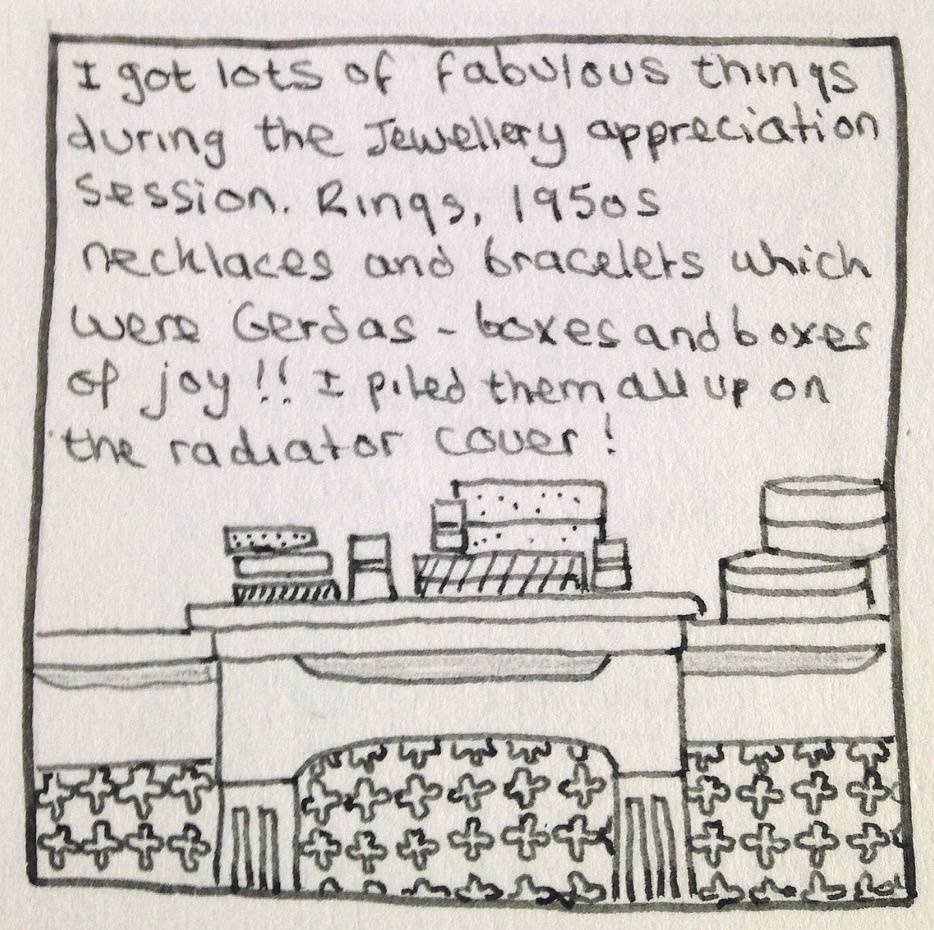 I got lots of fabulous things
during the Jewellery appreciation
session. Rings, 1950s
necklaces and bracelets which
were Gerdas - boxes and boxes
of joy!! I piled them all up on
the radiator cover!